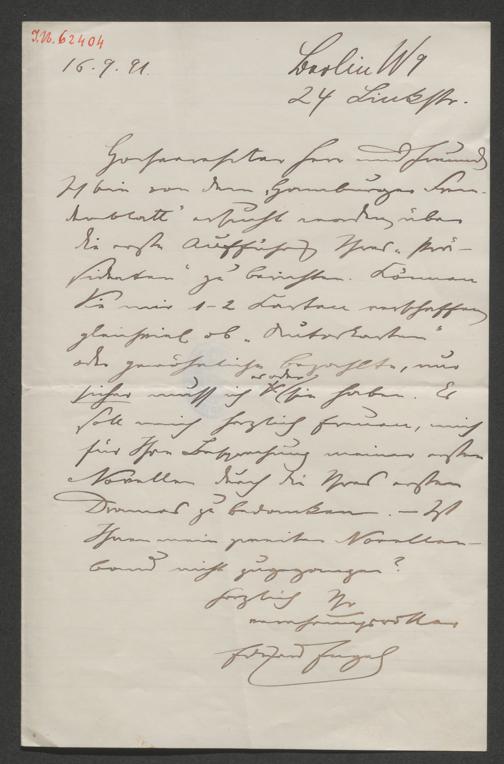 I.N. 62404
16.9.91.
Berlin W9
24 Linkstr.
Hochverehrter Herr und Freund
Ich bin von dem „Hamburger Frem-
denblatt" ersucht worden, über
die erste Aufführung Ihres „Prä-
sidenten" zu berichten. Können
Sie mir 1-2 Karten verschaffen,
gleichviel ob „Autorkarten"
oder gewöhnliche bezahlte, nur
sicher muß ich sie haben. Es
soll mich herzlich freuen, mich
für Ihre Besprechung meiner ersten
Novellen durch die Ihres ersten
Dramas zu bedanken. — Ist
Ihnen mein zweiter Novellen-
band nicht zugegangen?
Herzlich Ihr
verehrungsvoller
Eduard Engel